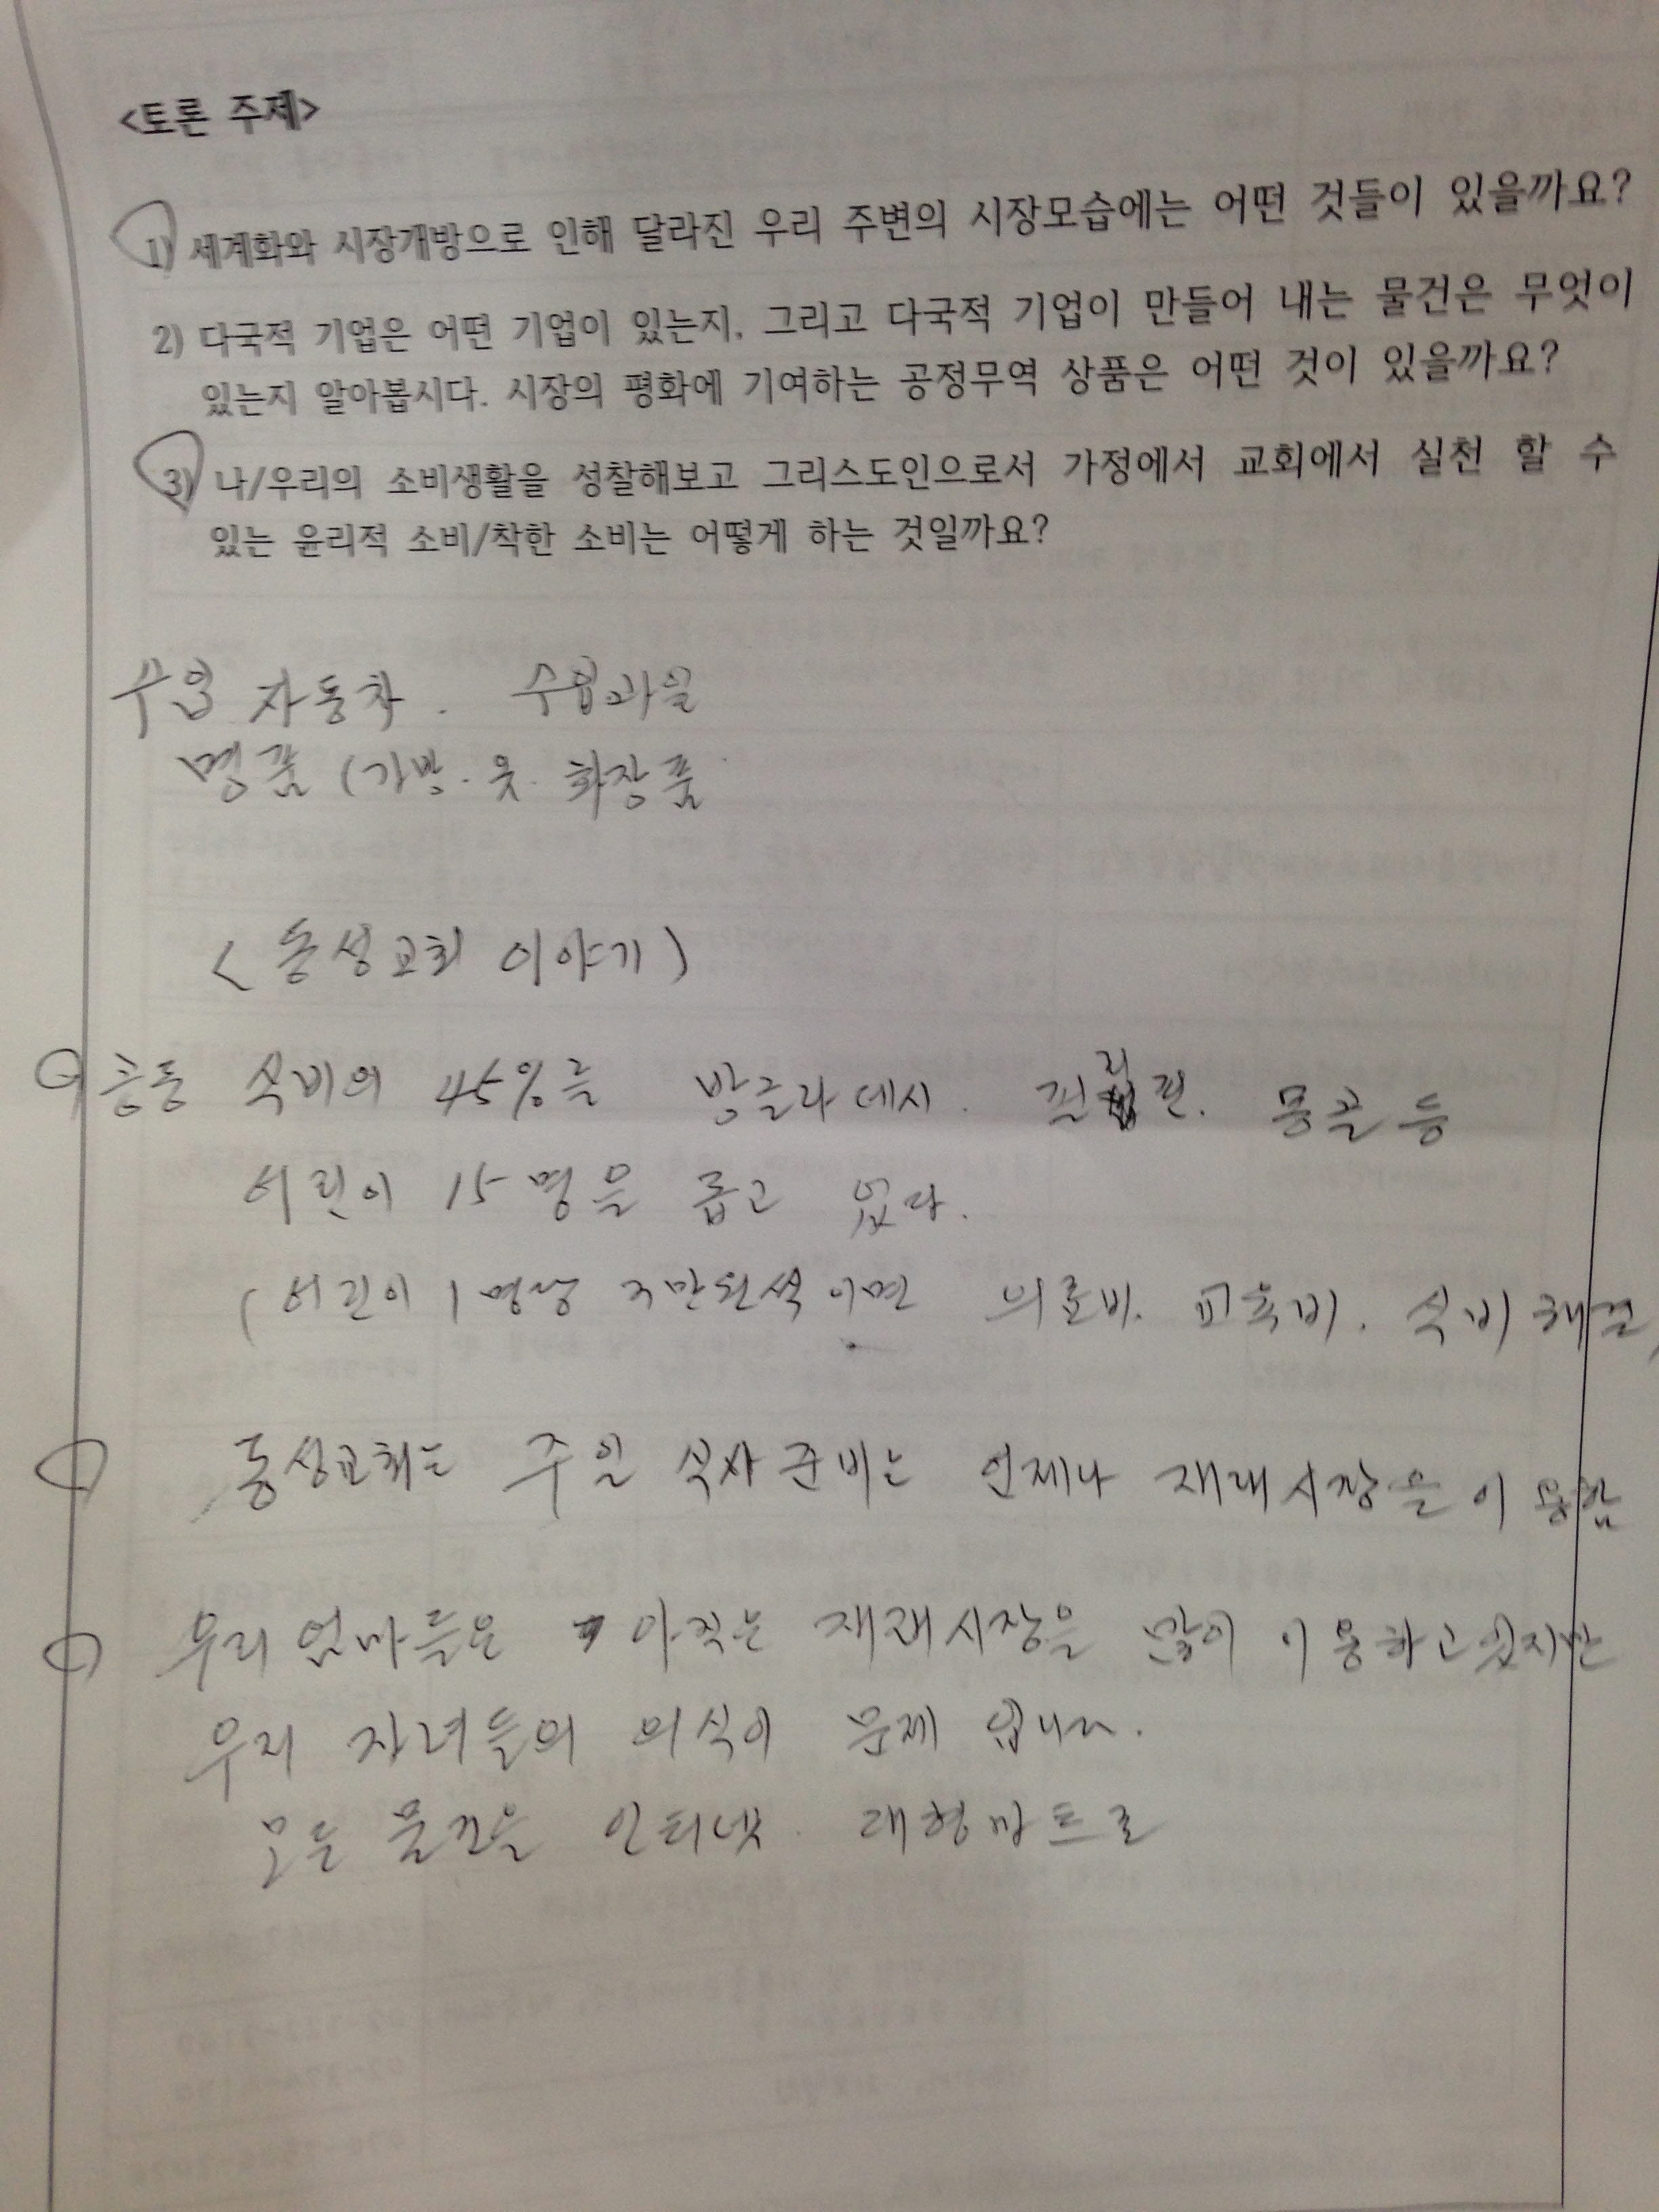 <토론 주제>
1) 세계화와 시장개방으로 인해 달라진 우리 주변의 시장모습에는 어떤 것들이 있을까요?
2) 다국적 기업은 어떤 기업이 있는지, 그리고 다국적 기업이 만들어 내는 물건은 무엇이
있는지 알아봅시다. 시장의 평화에 기여하는 공정무역 상품은 어떤 것이 있을까요?
3) 나/우리의 소비생활을 성찰해보고 그리스도인으로서 가정에서 교회에서 실천 할 수
있는 윤리적 소비/착한 소비는 어떻게 하는 것일까요?
수입 자동차. 수입과일
명품 (가방. 옷. 화장품
<동성교회 이야기>
공동 식비의 45%를 방글라데시. 필리핀. 몽골 등
어린이 15명을 돕고 있다.
(어린이 1명당 3만원씩이면 의료비. 교육비. 식비 해결)
동성교회는 주일 식사준비는 언제나 재래시장을 이용함
우리 엄마들은 아직은 재래시장을 많이 이용하고있지만
우리 자녀들의 의식이 문제 입니다.
모든 물건을 인터넷. 대형마트로